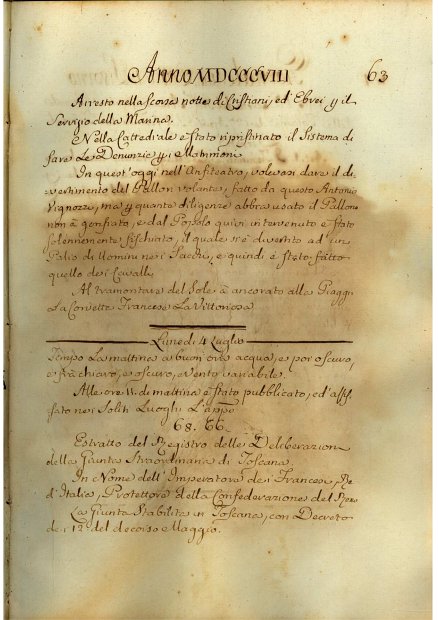 ANNO MDCCCVIII 63
Arresto nella scorsa notte di Cristiani, ed Ebrei p il
Servizio della Marina.
Nella Cattedrale è stato ripristinato il Sistema di
fare Le Denunzie p i Matrimoni
In quest'oggi nell'Anfiteatro, volevasi dare il di-
vertimento del Pallon volante, fatto da questo Antonio
Vignozzi, ma p quante diligenze abbia usato il Pallone
non à gonfiato, e dal Popolo quivi intervenuto è stato
solennemente fischiato, il quale si è divertito ad un
Palio di Uomini nei Sacchi, e quindi è stato fatto
quello dei Cavalli.
Al tramontare del Sole à ancorato alla Piaggia
La Corvetta Francese La Vittoriosa
Lunedì 4 Luglio
Tempo La mattina a buon'ora acqua, e poi oscuro,
e frà chiaro, e oscuro, e vento variabile
Alle ore 11. di mattina è stato pubblicato, ed affis-
sato nei Soliti Luoghi L'app.º
68. 66.
Estratto del Registro delle Deliberazioni
della Giunta Straordinaria di Toscana.
In Nome dell'Imperatore dei Francesi, Re
d'Italia, Protettore della Confederazione del Reno
La Giunta Stabilita in Toscana, con Decreto
dei 12 del decorso Maggio.